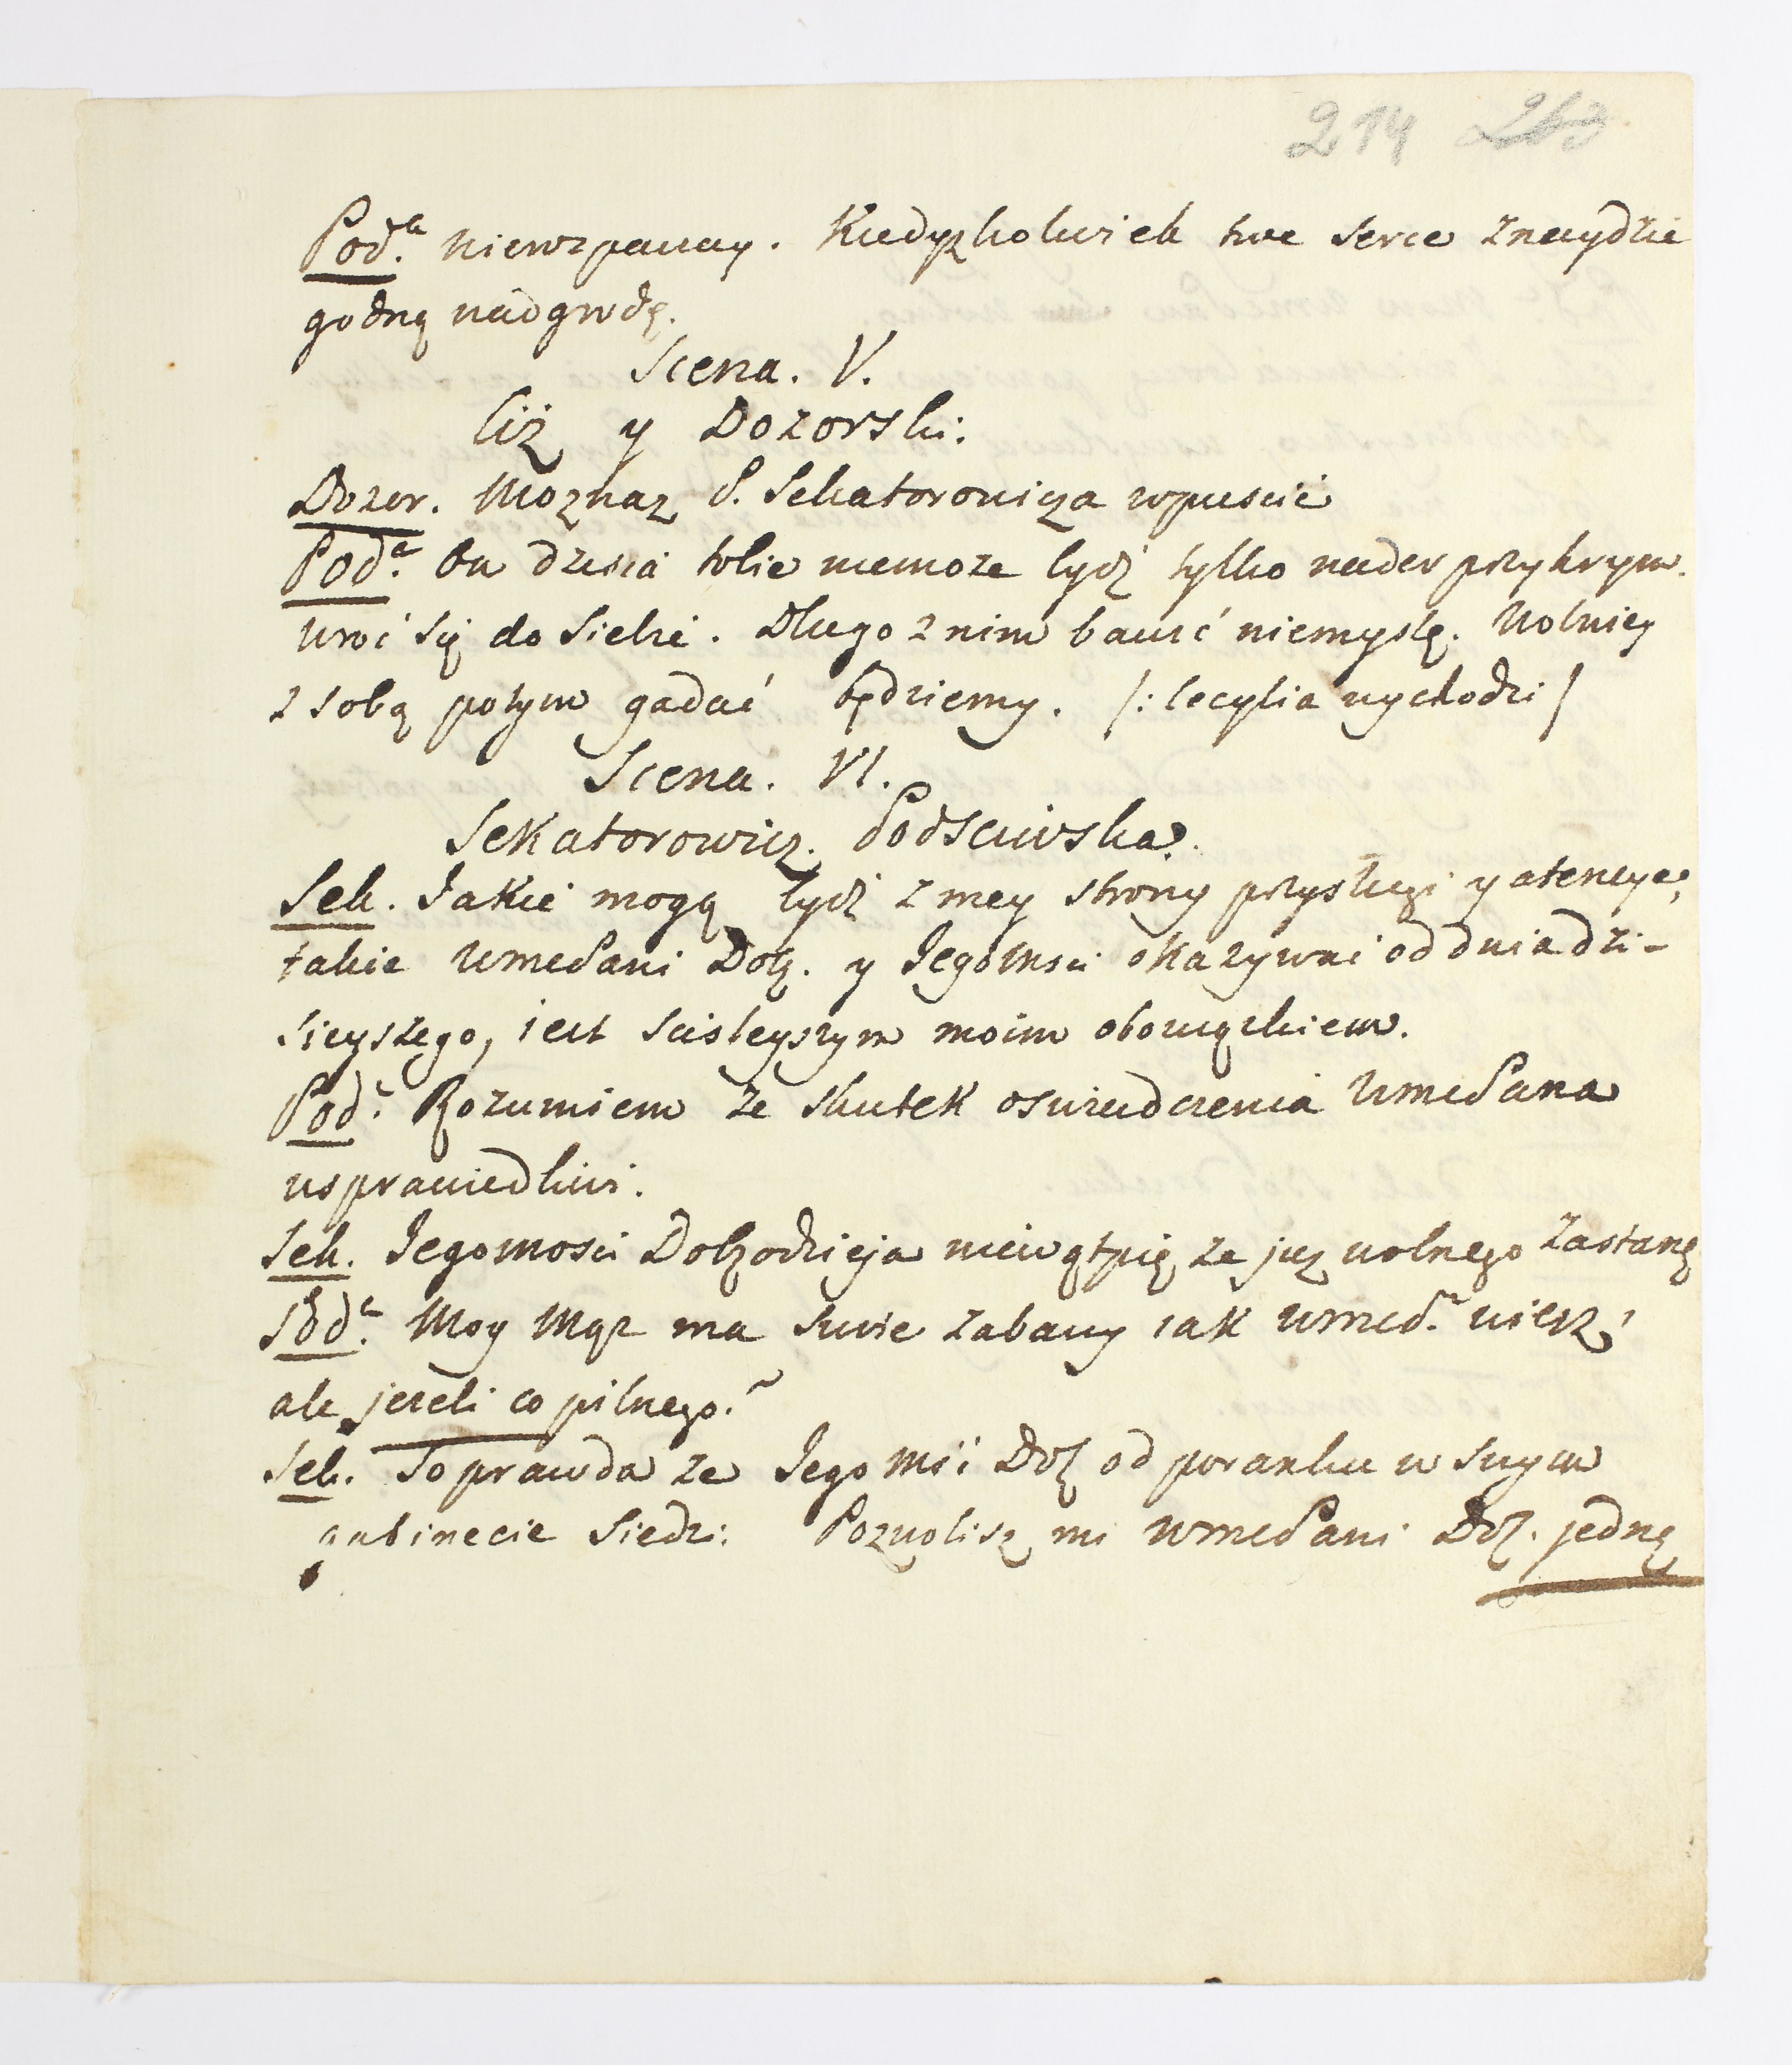 214 263
Pod.a nierozpaczay. Kiedyżkolwiek twe serce znaydzie
godną nadgrodę.
Scena. V.
Ciż y Dozorski.
Dozor. Możnaż P. Sekatorowicza wpuscić
Pod.a On dzisiá tobie niemoże bydź tylko nader przykrym.
wróć się do siebie. Długo z nim bawić niemyślę. Wolniey
z sobą potym gadać będziemy. /: Cecylia wychodzi /
Scena. VI.
Sekatorowicz. Podsciwska.
Sek. Jakie mogą bydź z mey strony przysługi y atencye,
takie WmcPani Dob. y Jegomsci okazywać od dnia dzi-
sieyszego, iest scisleyszym moim obowiązkiem.
Pod.a Rozumiem ze skutek oswiadczenia WmcPana
usprawiedliwi.
Sek. Jegomosci Dobrodzieja niewątpię ze już wolnego zastanę
Pod.a Moy Mąż ma swoie zabawy iak Wmcp.n wiesz,
ale jezeli co pilnego.
Sek. To prawda ze Jego Mść Dob od poranku w swym
gabinecie siedzi. Pozwolisz mi WmcPani Dob. jedną